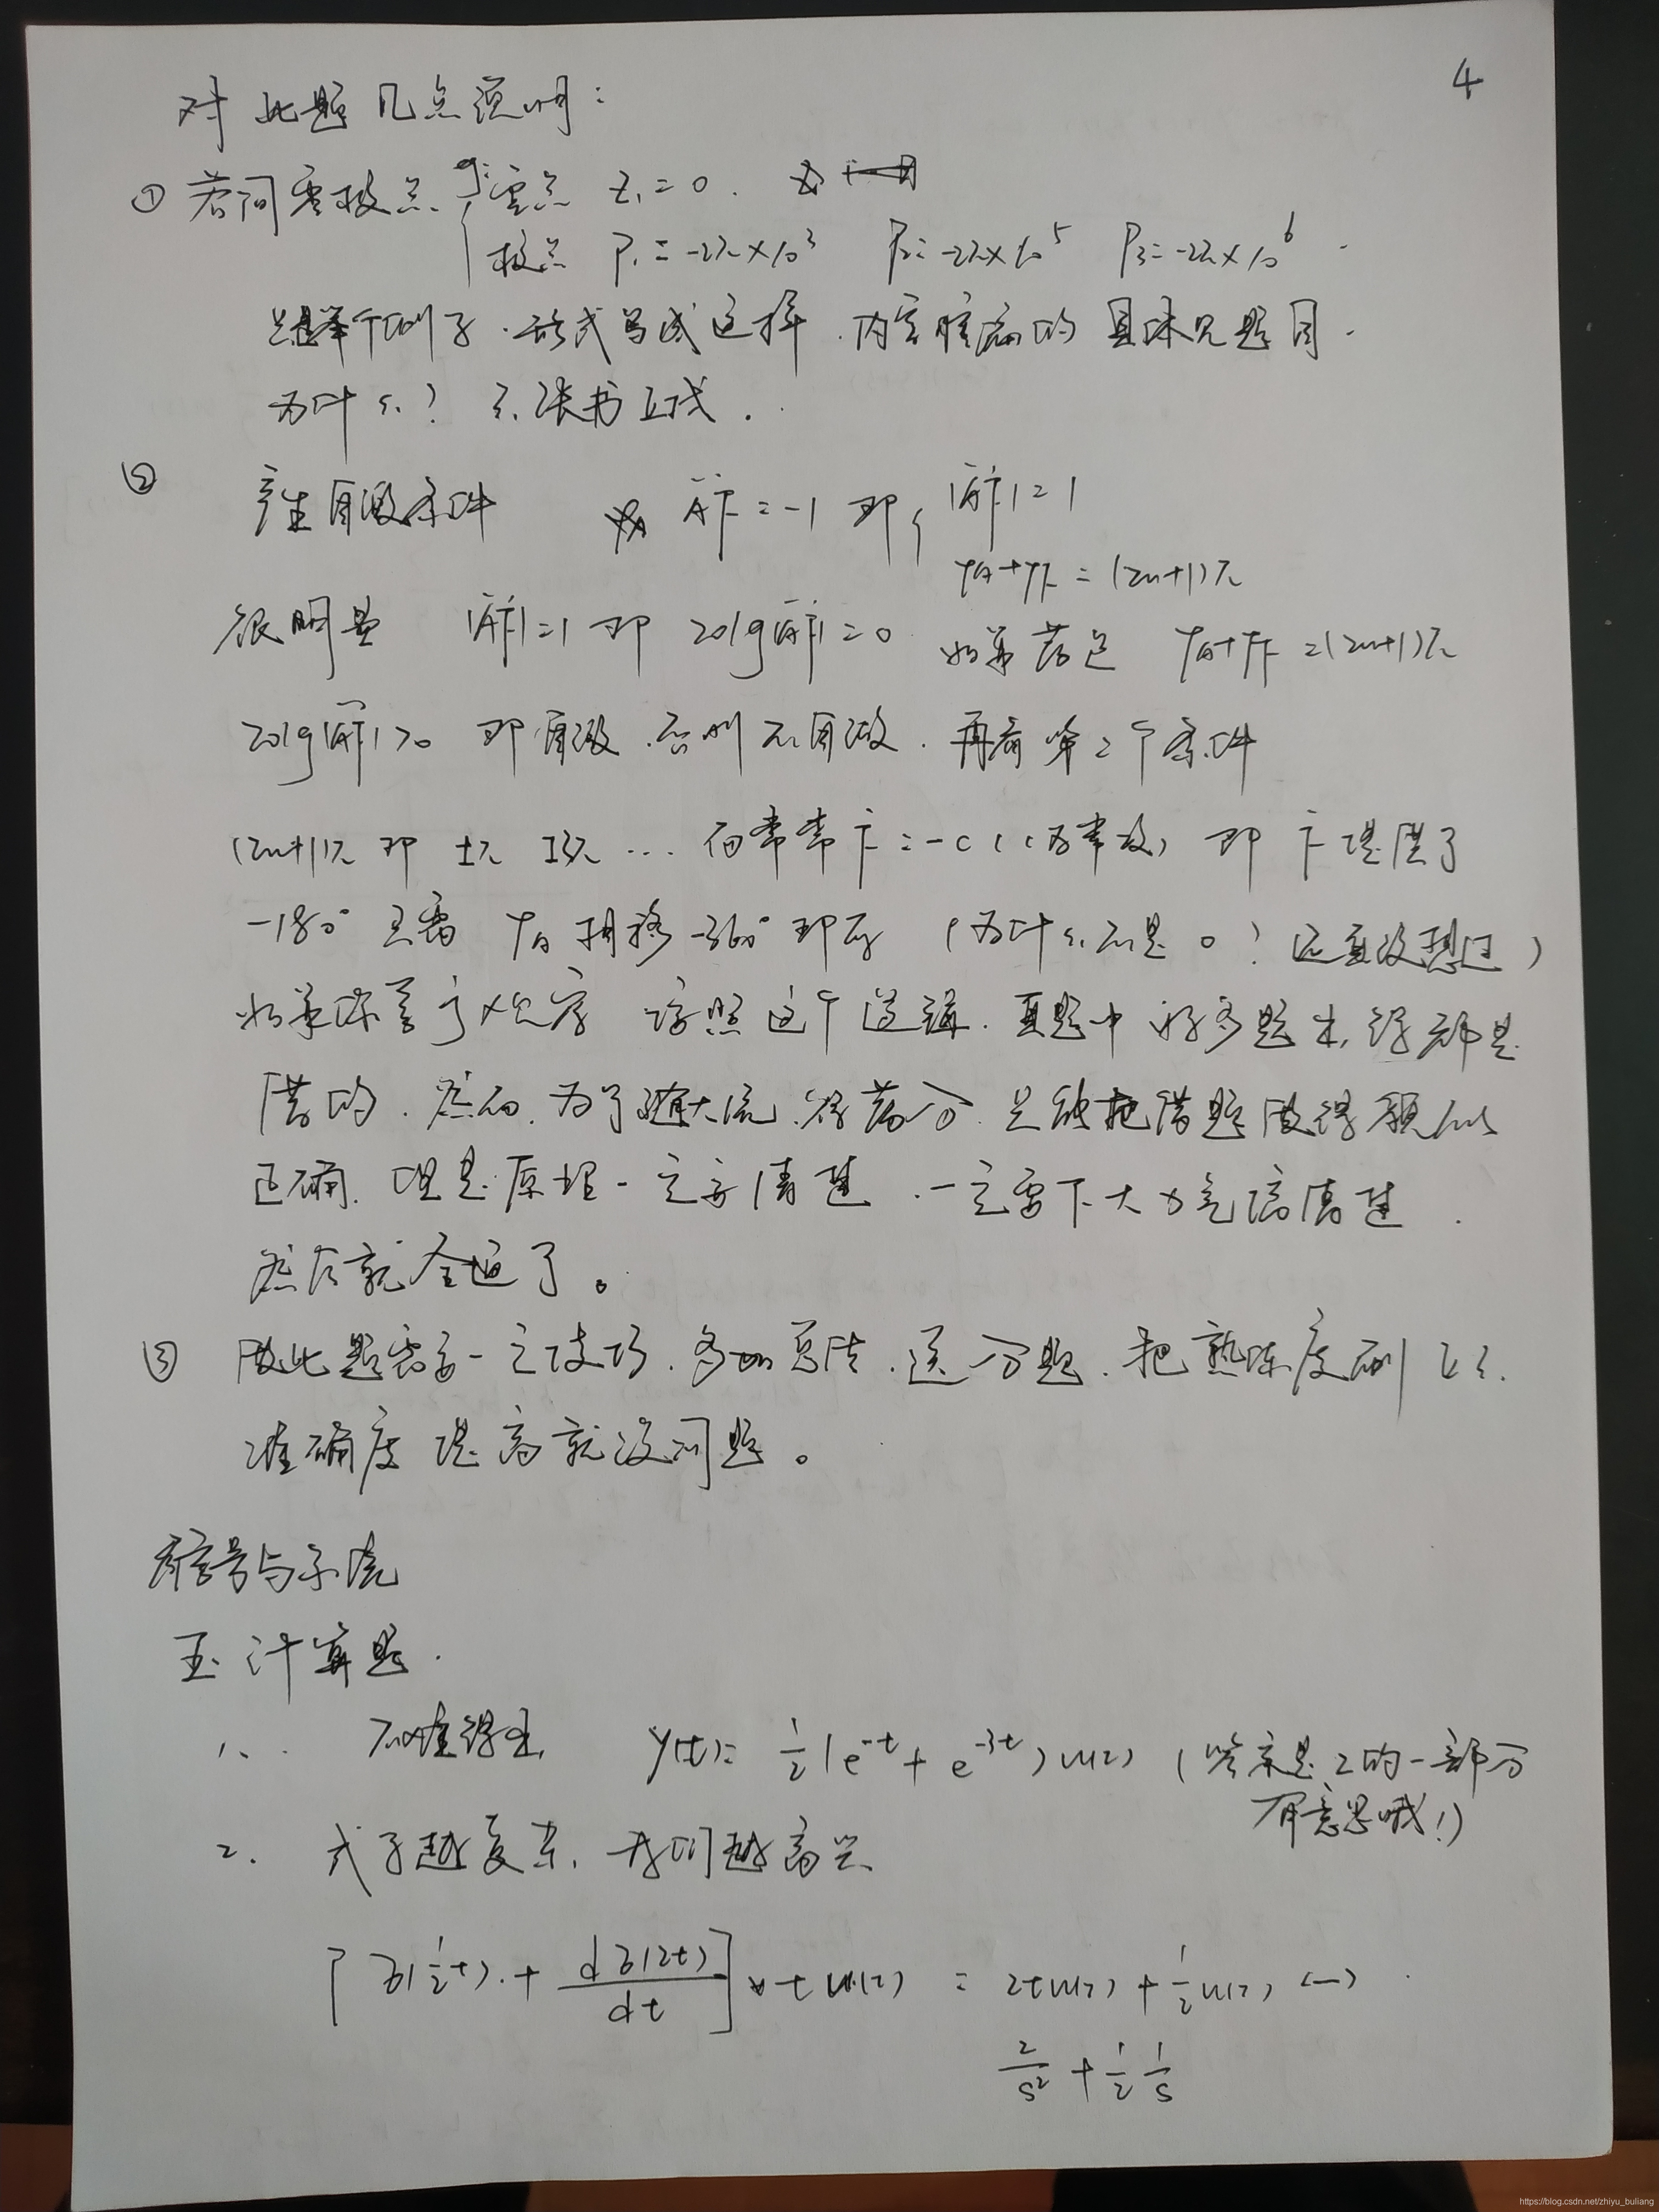 4
对此题几点说明：
① 若问零极点 { 零点 Z₁=0.
极点 P₁=-2π×10³ P₂=-2π×10⁵ P₃=-2π×10⁶
只是举个例子.形式写成这样.内容 的具体见题目.
为什么? 
② 产生自激条件 ȦḞ=-1 即 { |ȦḞ|=1
φA+φF=(2n+1)π
很明显 |ȦḞ|=1 即 20lg|ȦḞ|=0 如果满足 φA+φF=(2n+1)π
20lg|ȦḞ|>0 即自激.否则不自激.再看第2个条件
(2n+1)π 即 ±π ±3π … 而常常 Ḟ=-C (C为常数) 即 Ḟ提供了
-180° 只需 φA 相移-360°即可 (为什么不是0? 还真没想过)
如果 按照这个逻辑.真题中好多题 都是
错的.然而.为了随大流.得高分.只能把错题做得貌似
正确.但是原理一定要清楚.一定要下大力气搞清楚.
然后就全通了。
③ 做此题需要一定技巧.多加 .送分题.把熟练度刷上去.
准确度提高就没问题。
信号与系统
五.计算题.
1、 不难得出 y(t)=½(e⁻ᵗ+e⁻³ᵗ)u(t) (答案是2的一部分
有意思哦!)
2. 式子越复杂,我们越高兴
[δ(½t)+dδ(2t)/dt]*tu(t) = 2tu(t)+½u(t) ↔
2/s²+½ 1/s
https://blog.csdn.net/zhiyu_buliang